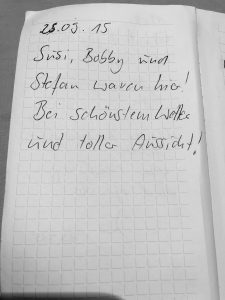 25.05.15
Susi, Bobby und
Stefan waren hier!
Bei schönstem Wetter
und toller Aussicht!